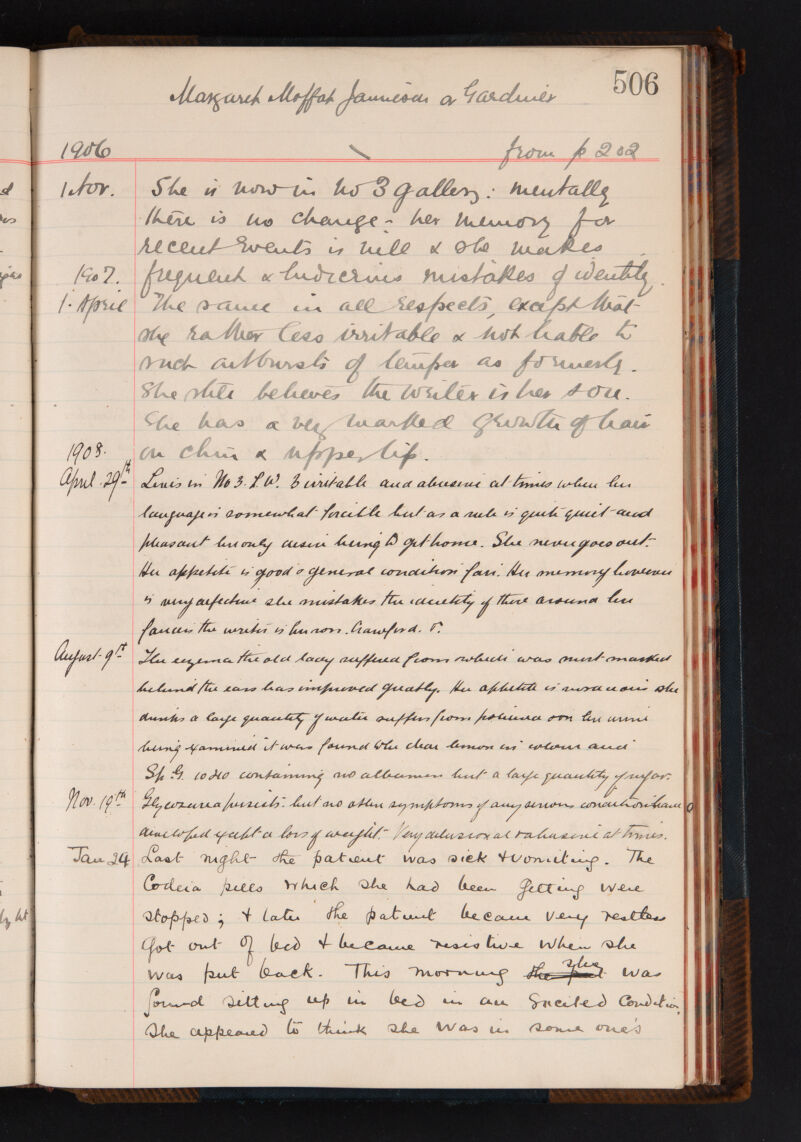 506
Margaret Moffat Jamieson or Gardiner
1906 from p 202
1 Nov. She is now in No 3 gallery: mentally
there is no change - her memory for
recent events is nill & she makes
1907. frequent & ludicrous mistakes of identity.
1. April The same in all respects, except that
she rather less irritable & not liable to
such outbursts of temper as formerly.
She still believes the writer is her son.
She has a very marked growth of hair
1908. on chin & upper lip.
April 29th Lives in No 3. L.W. Is irritable and abusive at times when her
language is somewhat forcible but as a rule is quite quiet and
pleasant her only desire being to get home. She never goes out.
Her appetite is good & general condition fair. Her memory however
is very defective she mistakes the identity of those around her
fancies the writer is her son. Crawford.
August 9th The eczema the old lady suffered from which was most marked
behind the ears has improved greatly. Her appetite is voracious she
drinks a large quantity of water suffers from & on her urine
being examined it was found to be clear lemon in colour and
Sp. G. 1040 containing no albumen but a large quantity of sugar.
Nov. 19th Glycosurea persists. but no other symptoms of any serious condition have
developed except a loss of weight. Very delusional & abusive at times.
Jan 24 Last night the patient was sick & vomiting. The
Codeia pills which she had been getting were
stopped; & later the patient became very restless
Got out of bed & became resistive when she
was put back. This morning the pat she was
found sitting up in bed in an excited condition.
She appeared to think she was in some one's